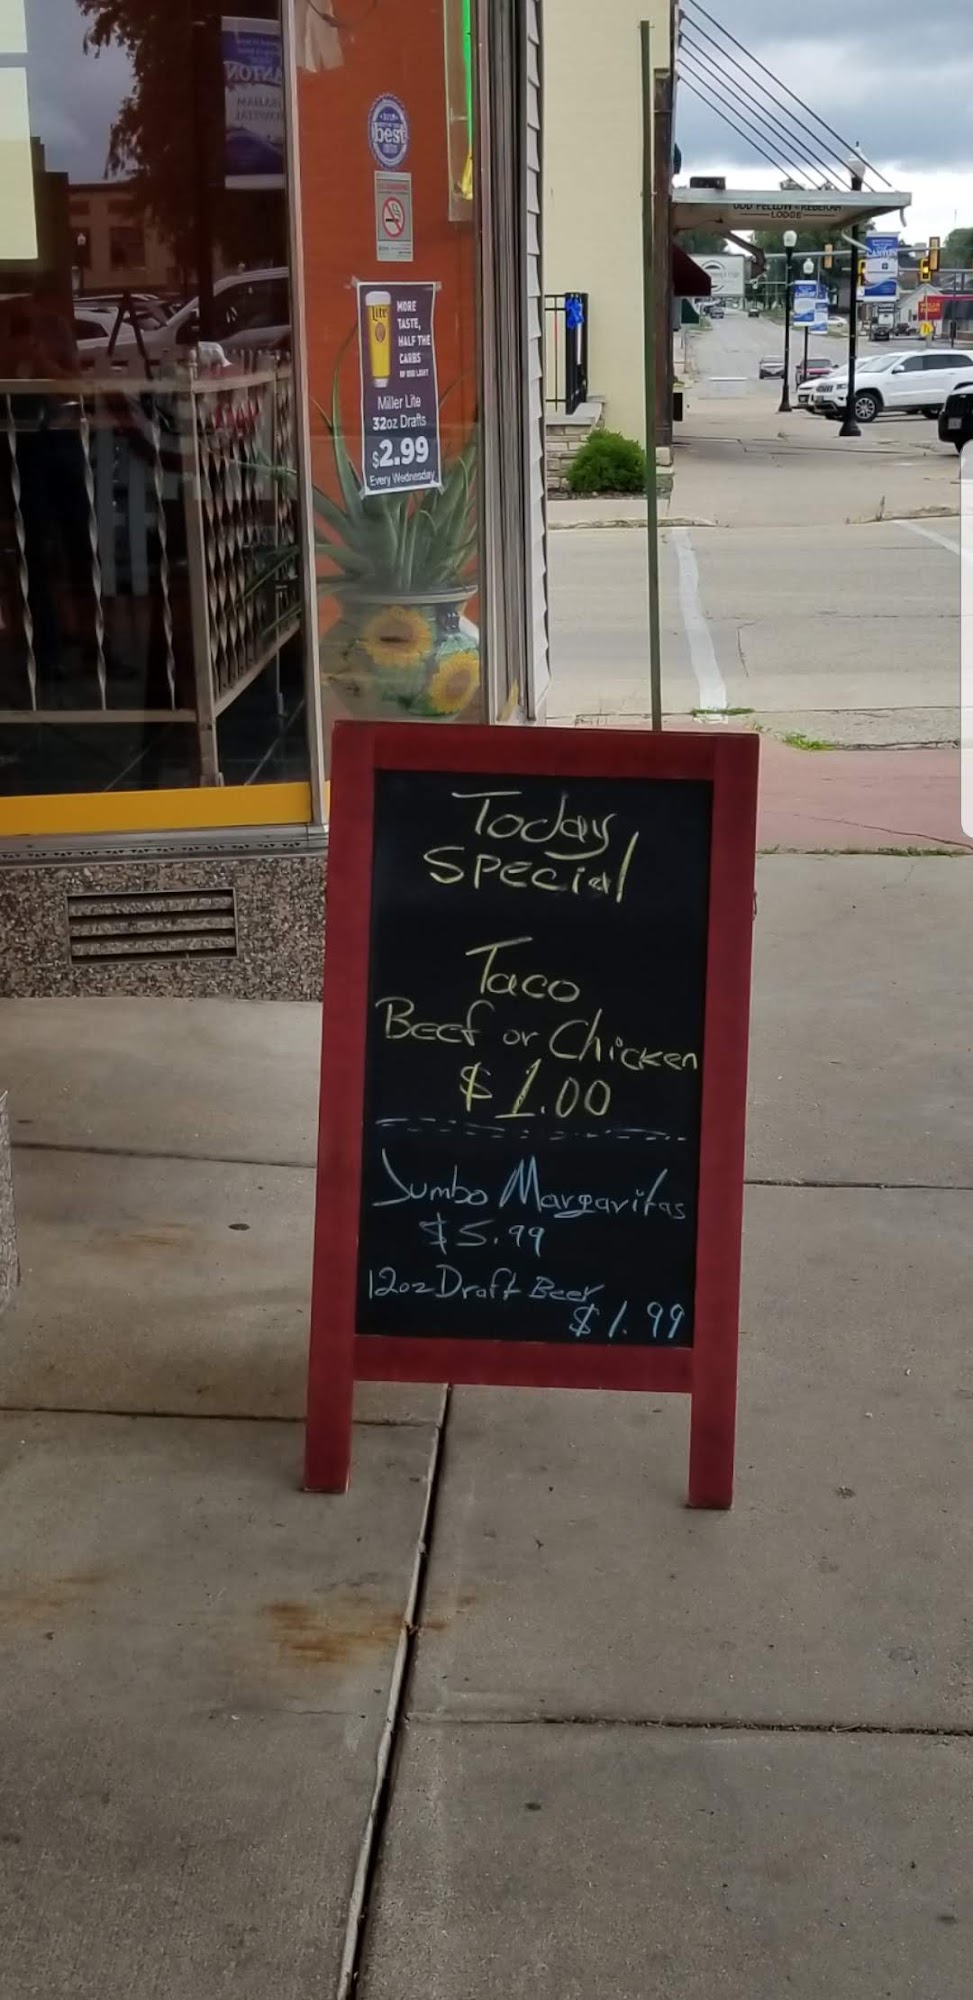 best
MORE
TASTE,
HALF THE
CARBS
OF BUD LIGHT
Lite
Miller Lite
32oz Drafts
$2.99
Every Wednesday
ODD FELLOW - REBEKAH
LODGE
CANTON
Today
Special
Taco
Beef or Chicken
$1.00
Jumbo Margaritas
$5.99
12oz Draft Beer
$1.99